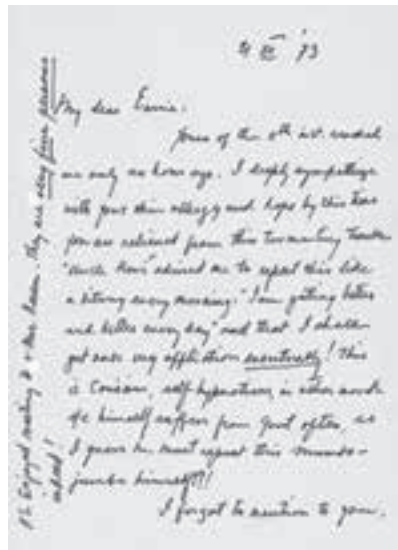 My dear
Yours of the 6th inst. reached
me only an hour ago. I deeply sympathize
with your skin allergy and hope by this time
you are relieved from this tormenting trouble
"Uncle advised me to repeat this like
a litany every morning: "I am getting better
and better every day" and that I shall
get over my affliction eventually! This
is Couéism, self hypnotism, in other words
He himself suffers from gout often, so
I guess he must repeat this mumbo-
jumbo himself!!!
I forgot to mention to you.
PS. Enjoyed meeting Dr & Mrs. They are very fine persons
indeed!